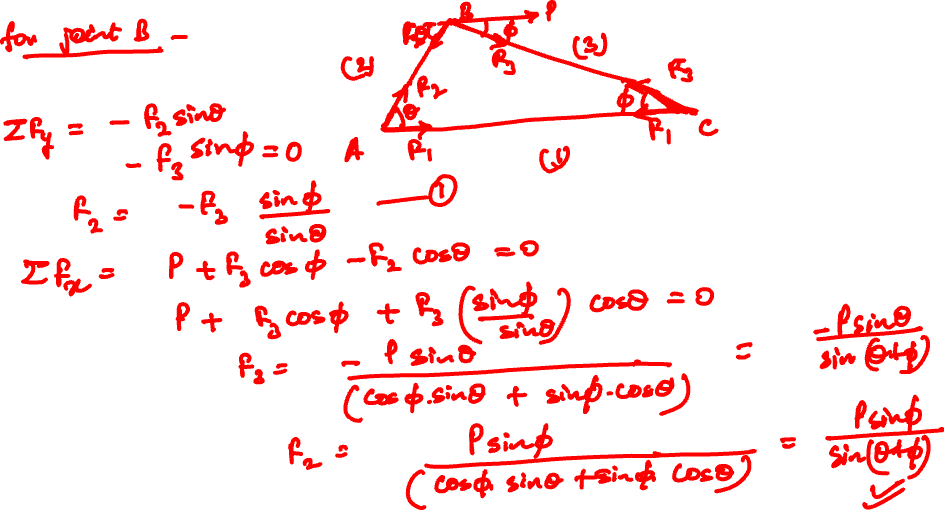 for joint B -
B P
ϕ
F₂ F₃ (3)
(2)
F₂ F₃
θ ϕ
A F₁ F₁ C
(1)
ΣFy = - F₂ sinθ
- F₃ sinϕ = 0
F₂ = -F₃ sinϕ / sinθ —①
ΣFx = P + F₃ cos ϕ - F₂ cosθ = 0
P + F₃ cosϕ + F₃ (sinϕ / sinθ) cosθ = 0
F₃ = - P sinθ / (cos ϕ.sinθ + sinϕ.cosθ) = -P sinθ / sin (θ+ϕ)
F₂ = P sinϕ / (cosϕ sinθ + sinϕ cosθ) = P sinϕ / sin(θ+ϕ)